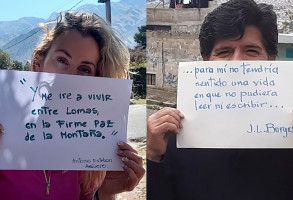 "Y me iré a vivir
entre Lomas,
en la firme paz
de la montaña."
...para mí no tendría
sentido una vida
en que no pudiera
leer ni escribir...
J.L. Borges